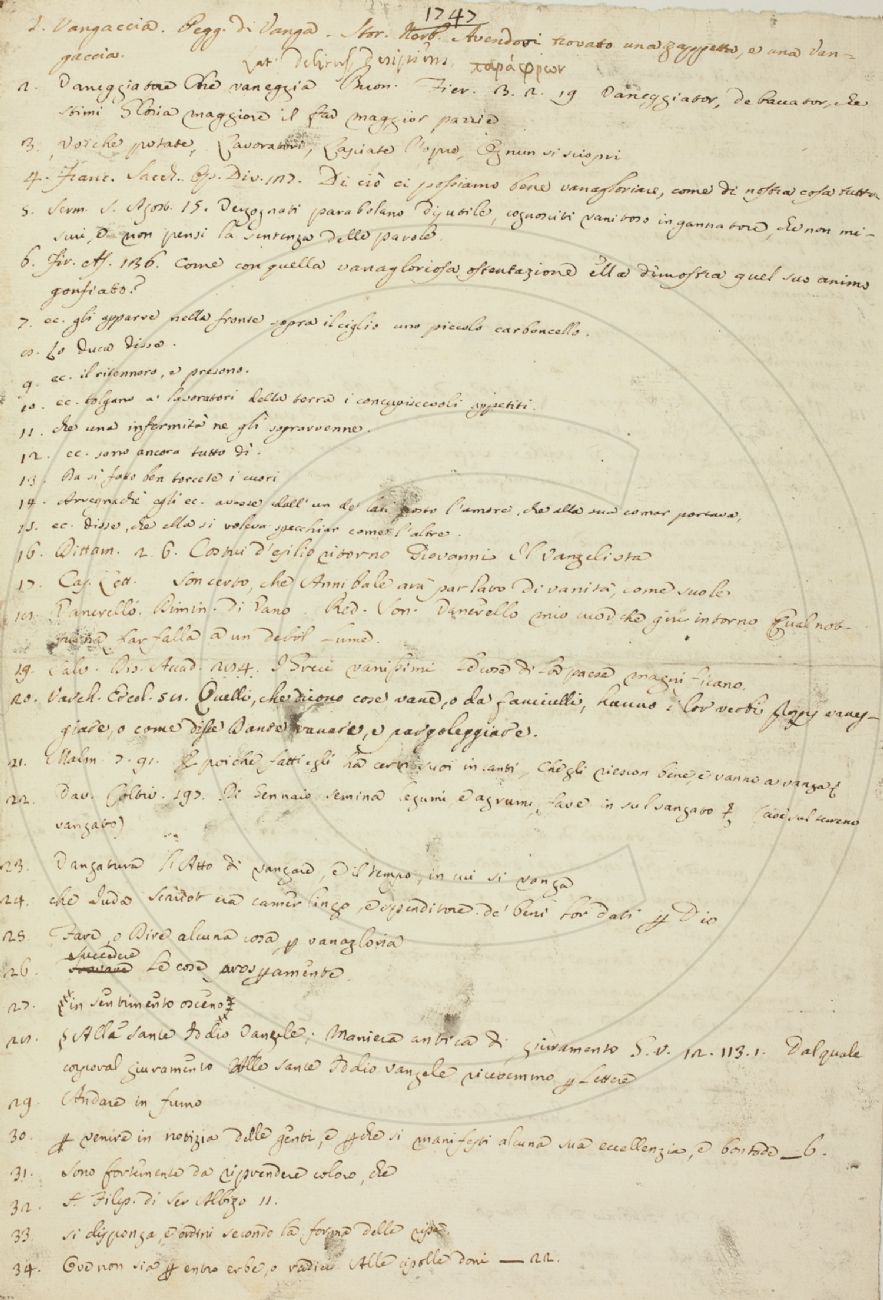 1747
1. Vangaccia. Pegg. di Vanga. Stor. Nerb. Avendovi trovato una zappetta, e una van-
gaccia. Lat. delirus, desipiens. παράφρων
2. Vaneggiatore Che vaneggia Buon. Fier. 3. 2. 19 Vaneggiator, debaccator, che
stimi Gloria maggiore il far maggior pazzie
3. Voi che potate, Lavoratori, Lasciate l'opre, Ognun si sciopri
4. Franc. Sacch. Op. Div. 117. Di ciò ci possiamo bene vanagloriare, come di nostra cosa tutta
5. Serm. S. Agost. 15. Vergognati parabolano disutile, cognosciti vanitoso ingannatore, che non mi-
suri, e non pensi la sentenza delle parole.
6. Fir. As. 136. Come con quella vanagloriosa ostentazione ella dimostra quel suo animo
gonfiato?
7. ec. gli apparve nella fronte sopra il ciglio uno piccolo carboncello.
8. Lo duca disse.
9. ec. il ritennero, e presono.
10. ec. tolgano a' lavoratori della terra i concupiscevoli appetiti.
11. che una infermità ne gli sopravvenne.
12. ec. sono ancora tutto dì.
13. Da sì fatto ben torcete i cuori
14. Avvegnachè egli ec. avesse dall'un de' lati posto l'amore, che alla sua comar portava,
15. ec. disse, che ella si voleva specchiar come l'altre.
16. Dittam. 2 6. Costui d'esilio ritornò Giovanni Il Vangelista
17. Cas. Lett. Son certo, che Annibale avrà parlato di vanità, come suole
18. Vanerello. Dimin. di Vano. Red. Son. Vanerello mio cuor, che giri intorno Qual not-
turna farfalla a un debil lume.
19. Salv. Dis. Accad. 2. 194. I Greci vanissimi Le cose di lor paese magnificano.
20. Varch. Ercol. 58. Quelli, che dicono cose vane, o da fanciulli, hanno i lor verbi proprj vaneg-
giare, o come disse Dante vanare, e pargoleggiare.
21. Malm. 7. 91. E poichè fatti egli ha certi suoi incanti, Che gli riescon bene, e vanno a vanga
22. Dav. Coltiv. 197. Di Gennaio semina legumi, e agrumi, fave in sul vangato (cioè sul terreno
vangato)
23. Vangatura L'Atto di vangare, e il tempo, in cui si vanga
24. che Juda Scariot era camerlingo, e spenditore de' beni lor dati p Dio
25. Fare, o Dire alcuna cosa p vanagloria
26. succedere Le cose prosperamente
27. in sentimento osceno
28. Alle Sante Iddio Vangele: Maniera antica di giuramento G. V. 12. 113. 1. Dal quale
corporal giuramento Alle sante Iddio vangele ricevemmo p Lettere
29. Andare in fumo
30. p venire in notizia delle genti, e pchè si manifesti alcuna sua eccellenzia, e bontade _ 6.
31. Sono fortemente da riprendere coloro, che
32. F. Filip. di Ser Albizo 11.
33. si disponga, e ordini secondo la forma delle
34. Ove non sia p entro erbe, o radici Alle cipolle doni _ 22.